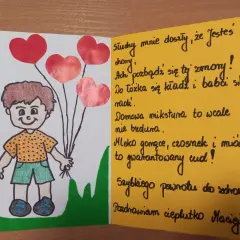 Słuchy mnie doszły, że Jesteś
chory!
Ach! pozbądź się tej zmory!
Do łóżka się kładź i babci się
nudź.
Domowa miksturka to wcale
nie bzdura.
Mleko gorące, czosnek i miód
to gwarantowany cud!
Szybkiego powrotu do zdrowia
Pozdrawiam cieplutko Maciej